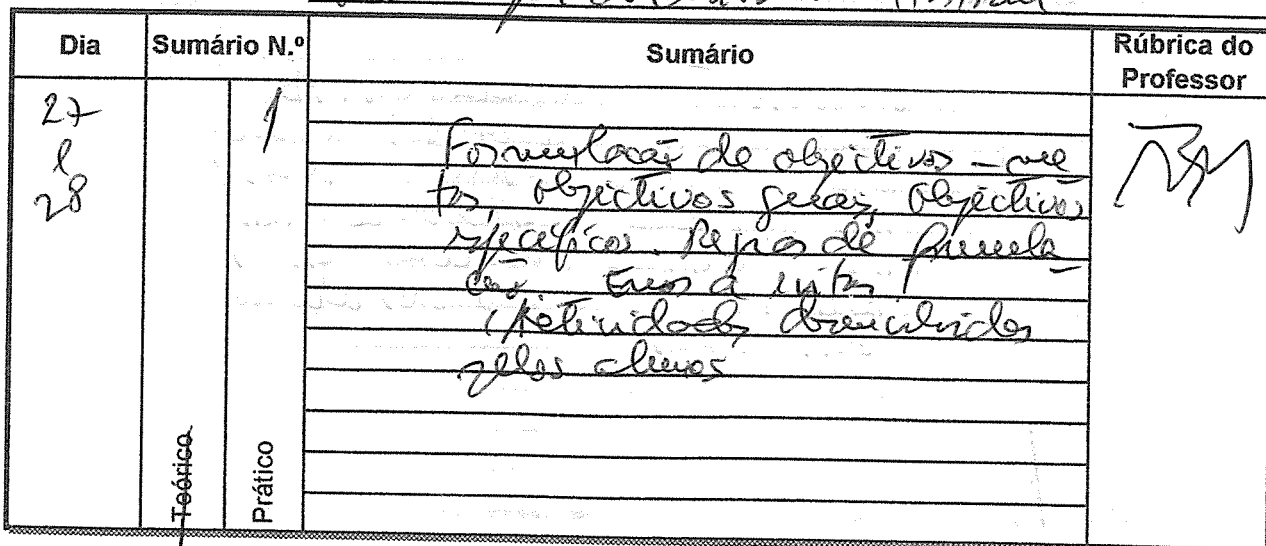 Dia Sumário N.º Sumário Rúbrica do Professor
27 e 28
1
Formulação de objectivos - me
tas, objectivos gerais, objectivos
específicos. Regras de formula
ção. Erros a evitar
Actividades desenvolvidas
pelos alunos
Teórico
Prático